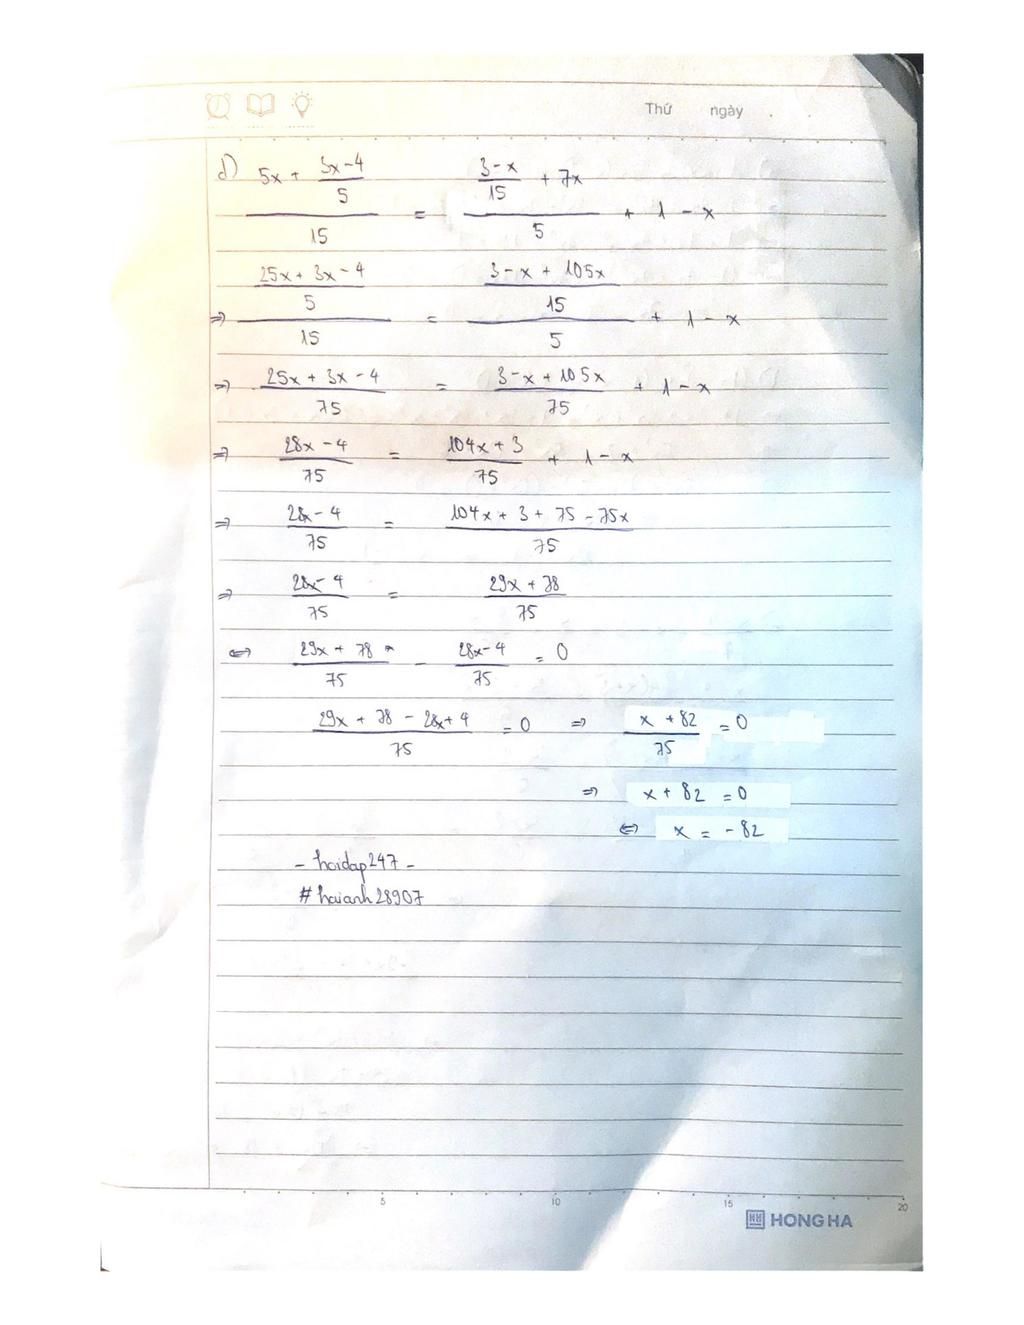 Thứ ngày
d) (5x + (3x-4)/5)/15 = ((3-x)/15 + 7x)/5 + 1 - x
=> ((25x + 3x - 4)/5)/15 = ((3-x + 105x)/15)/5 + 1 - x
=> (25x + 3x - 4)/75 = (3-x + 105x)/75 + 1 - x
=> (28x - 4)/75 = (104x + 3)/75 + 1 - x
=> (28x - 4)/75 = (104x + 3 + 75 - 75x)/75
=> (28x - 4)/75 = (29x + 78)/75
<=> (29x + 78)/75 - (28x - 4)/75 = 0
(29x + 78 - 28x + 4)/75 = 0 => (x + 82)/75 = 0
=> x + 82 = 0
<=> x = -82
- hoidap247 -
#haianh28907
5 10 15 20
HH HONG HA